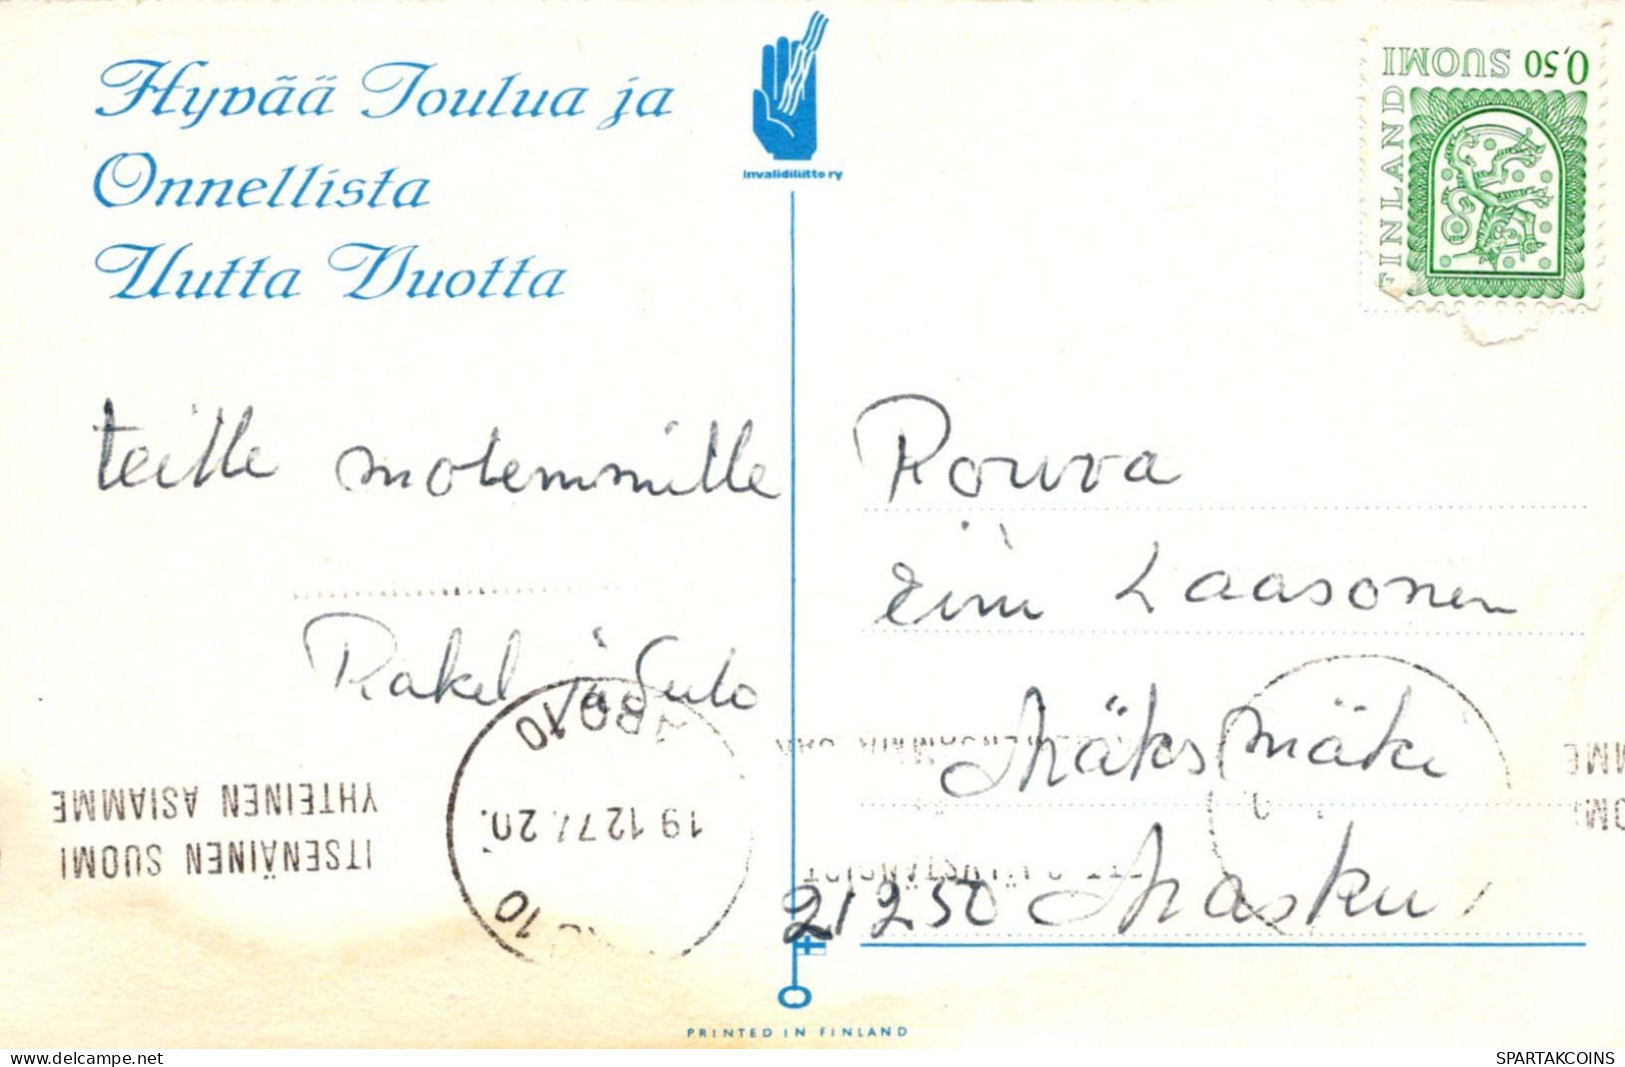 Hyvää Joulua ja
Onnellista
Uutta Vuotta
invalidiliitto ry
0,50 SUOMI
FINLAND
teille molemmille
Rakel ja Sulo
Rouva
Eini Laasonen
Mäksmäki
21250 Masku
ITSENÄINEN SUOMI
YHTEINEN ASIAMME
19.12.77.20
10
ABO 10
PRINTED IN FINLAND
delcampe.net
SPARTAKCOINS